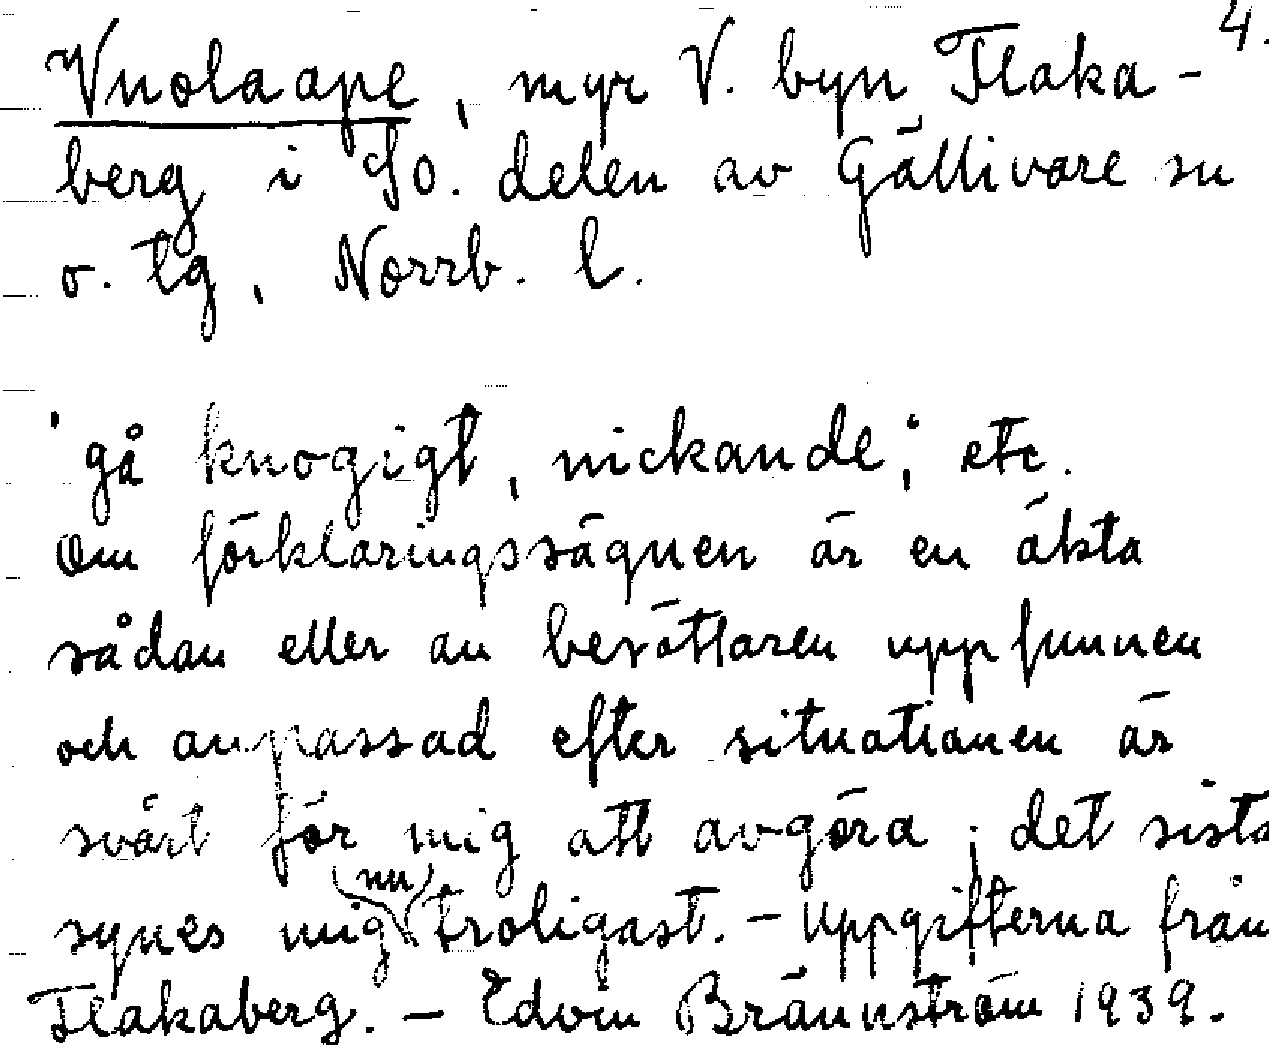 4.
Vuolaape, myr V. byn Flaka-
berg i So. delen av Gällivare sn
o. tg, Norrb. l.
'gå knogigt, nickande', etc.
Om förklaringssägnen är en äkta
sådan eller av berättaren uppfunnen
och anpassad efter situationen är
svårt för mig att avgöra; det sista
synes mig (nu) troligast. – Uppgifterna från
Flakaberg. – Edvin Brännström 1939.